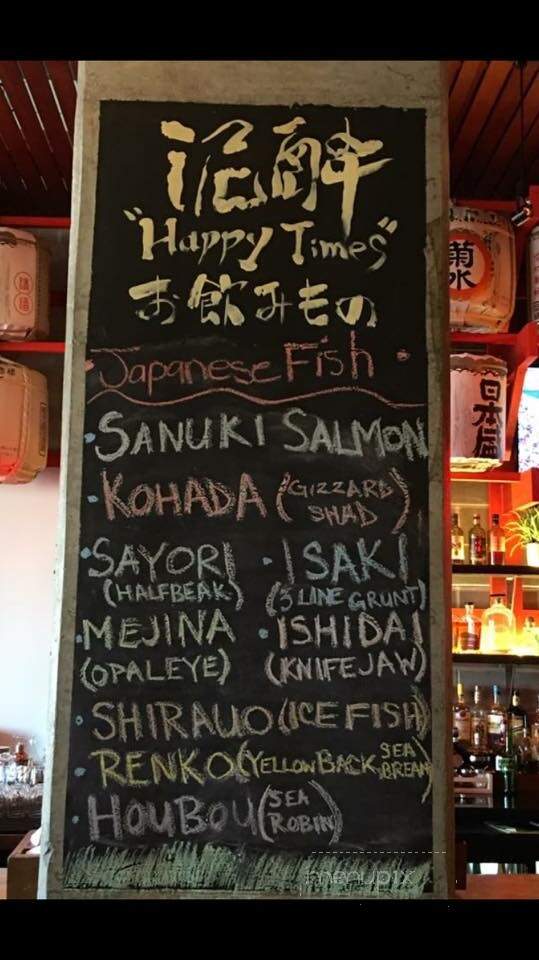 泥酔
"Happy Times"
お飲みもの
Japanese Fish
SANUKI SALMON
KOHADA (GIZZARD SHAD)
SAYORI (HALFBEAK)
ISAKI (3 LINE GRUNT)
MEJINA (OPALEYE)
ISHIDAI (KNIFEJAW)
SHIRAUO (ICE FISH)
RENKO (YELLOW BACK SEA BREAM)
HOUBOU (SEA ROBIN)
菊水
日本盛
menupix